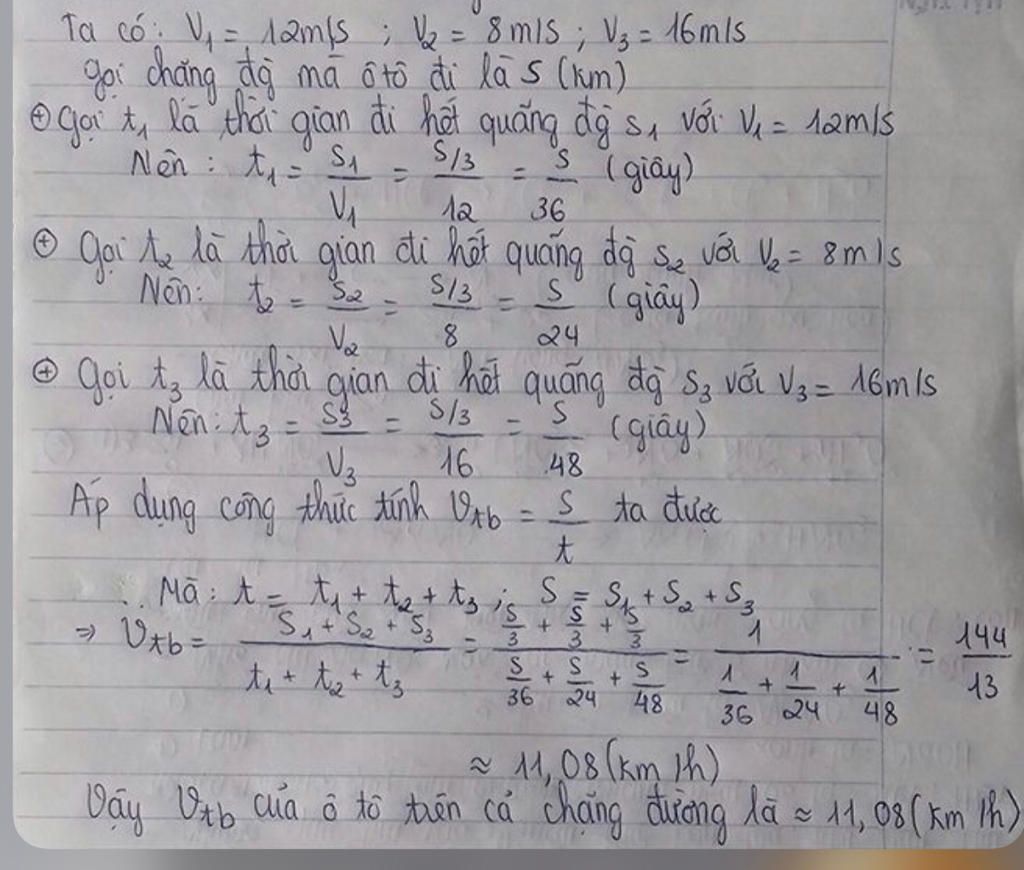 Ta có: V₁ = 12m/s ; V₂ = 8m/s ; V₃ = 16m/s
Gọi chặng đg mà ôtô đi là S (km)
⊕ Gọi t₁ là thời gian đi hết quãng đg S₁ với V₁ = 12m/s
Nên : t₁ = S₁/V₁ = (S/3)/12 = S/36 (giây)
⊕ Gọi t₂ là thời gian đi hết quãng đg S₂ với V₂ = 8m/s
Nên: t₂ = S₂/V₂ = (S/3)/8 = S/24 (giây)
⊕ Gọi t₃ là thời gian đi hết quãng đg S₃ với V₃ = 16m/s
Nên: t₃ = S₃/V₃ = (S/3)/16 = S/48 (giây)
Áp dụng công thức tính Vtb = S/t ta được
Mà: t = t₁ + t₂ + t₃ ; S = S₁ + S₂ + S₃
⇒ Vtb = (S₁ + S₂ + S₃)/(t₁ + t₂ + t₃) = (S/3 + S/3 + S/3)/(S/36 + S/24 + S/48) = 1/(1/36 + 1/24 + 1/48) = 144/13
≈ 11,08 (km/h)
Vậy Vtb của ô tô trên cả chặng đường là ≈ 11,08 (km/h)